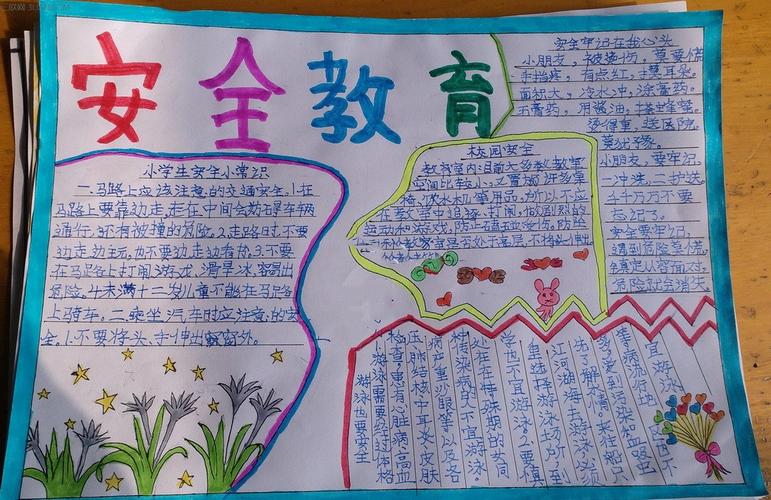 安全教育
小学生安全小常识
一.马路上应该注意的交通安全.1.在
马路上要靠边走,走在中间会妨碍车辆
通行,还有被撞的危险.2.走路时,不要
边走边玩,也不要边走边看书,3.不要
在马路上打闹游戏、滑旱冰,容易出
危险.4.未满十二岁儿童不能在马路
上骑车。二.乘坐汽车时应注意的安
全,1.不要将头、手伸出窗外。
校园安全
教室内:目前大多数教室
空间比较小,又置放许多桌
椅、饮水机等用品,所以不应
在教室中追逐、打闹,做剧烈的
运动和游戏,防止磕碰受伤。防坠
安全牢记在我心头
小朋友,被烫伤,莫要慌
手指疼,有点红,捏耳朵。
面积大,冷水冲,涂膏药。
烫得重,送医院。
莫犹豫。
小朋友,要牢记。
一冲洗,二护送。
千千万万不要
忘记了。
安全要牢记,
遇到危险莫慌
镇定从容面对
危险就会消失
游泳也要安全
游泳需要经过体格
检查。患有心脏病、高血
压、肺结核、中耳炎、皮肤
病、严重沙眼等以及各
种传染病的人不宜游泳。
处在特殊期的女同
学也不宜游泳。2.要慎
重选择游泳场所,到
江河湖海去游泳,必须
先了解
宜游泳